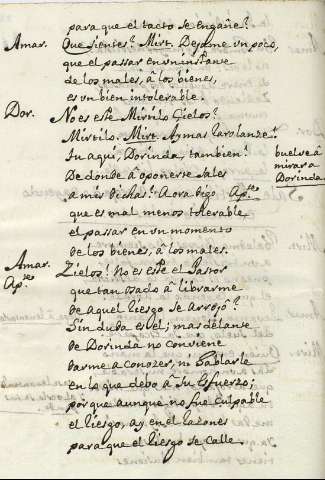 para que el tacto se engañe?
Amar. Que sientes? Mirt. Dejame un poco,
que el passar en un instante
de los males, â los bienes,
es un bien intolerable.
Dor. No es este Mirtilo Cielos?
Mirtilo. Mirt. Ay mas
Tu aqui, Dorinda, tambien?
buelve â
mirar a
Dorinda
De donde â oponerse sales
a mis dichas? Aora digo Ap.te
que es mal menos tolerable
el passar en un momento
de los bienes, â los males.
Amar. Cielos! No es este el Pastor
Ap.te que tan osado â librarme
de aquel riesgo se arrojô?
Sin duda es el; mas delante
de Dorinda no conviene
darme a conozer, ni hablarle
en lo que debo â su esfuerzo;
porque aunque no fue culpable
el riesgo, ay en el razones
para que el riesgo se calle.